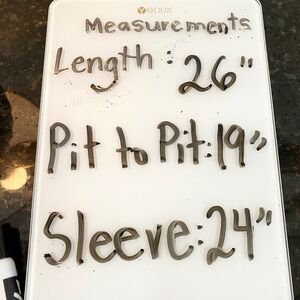 Yeoux
Measurements
Length: 26"
Pit to Pit: 19"
Sleeve: 24"